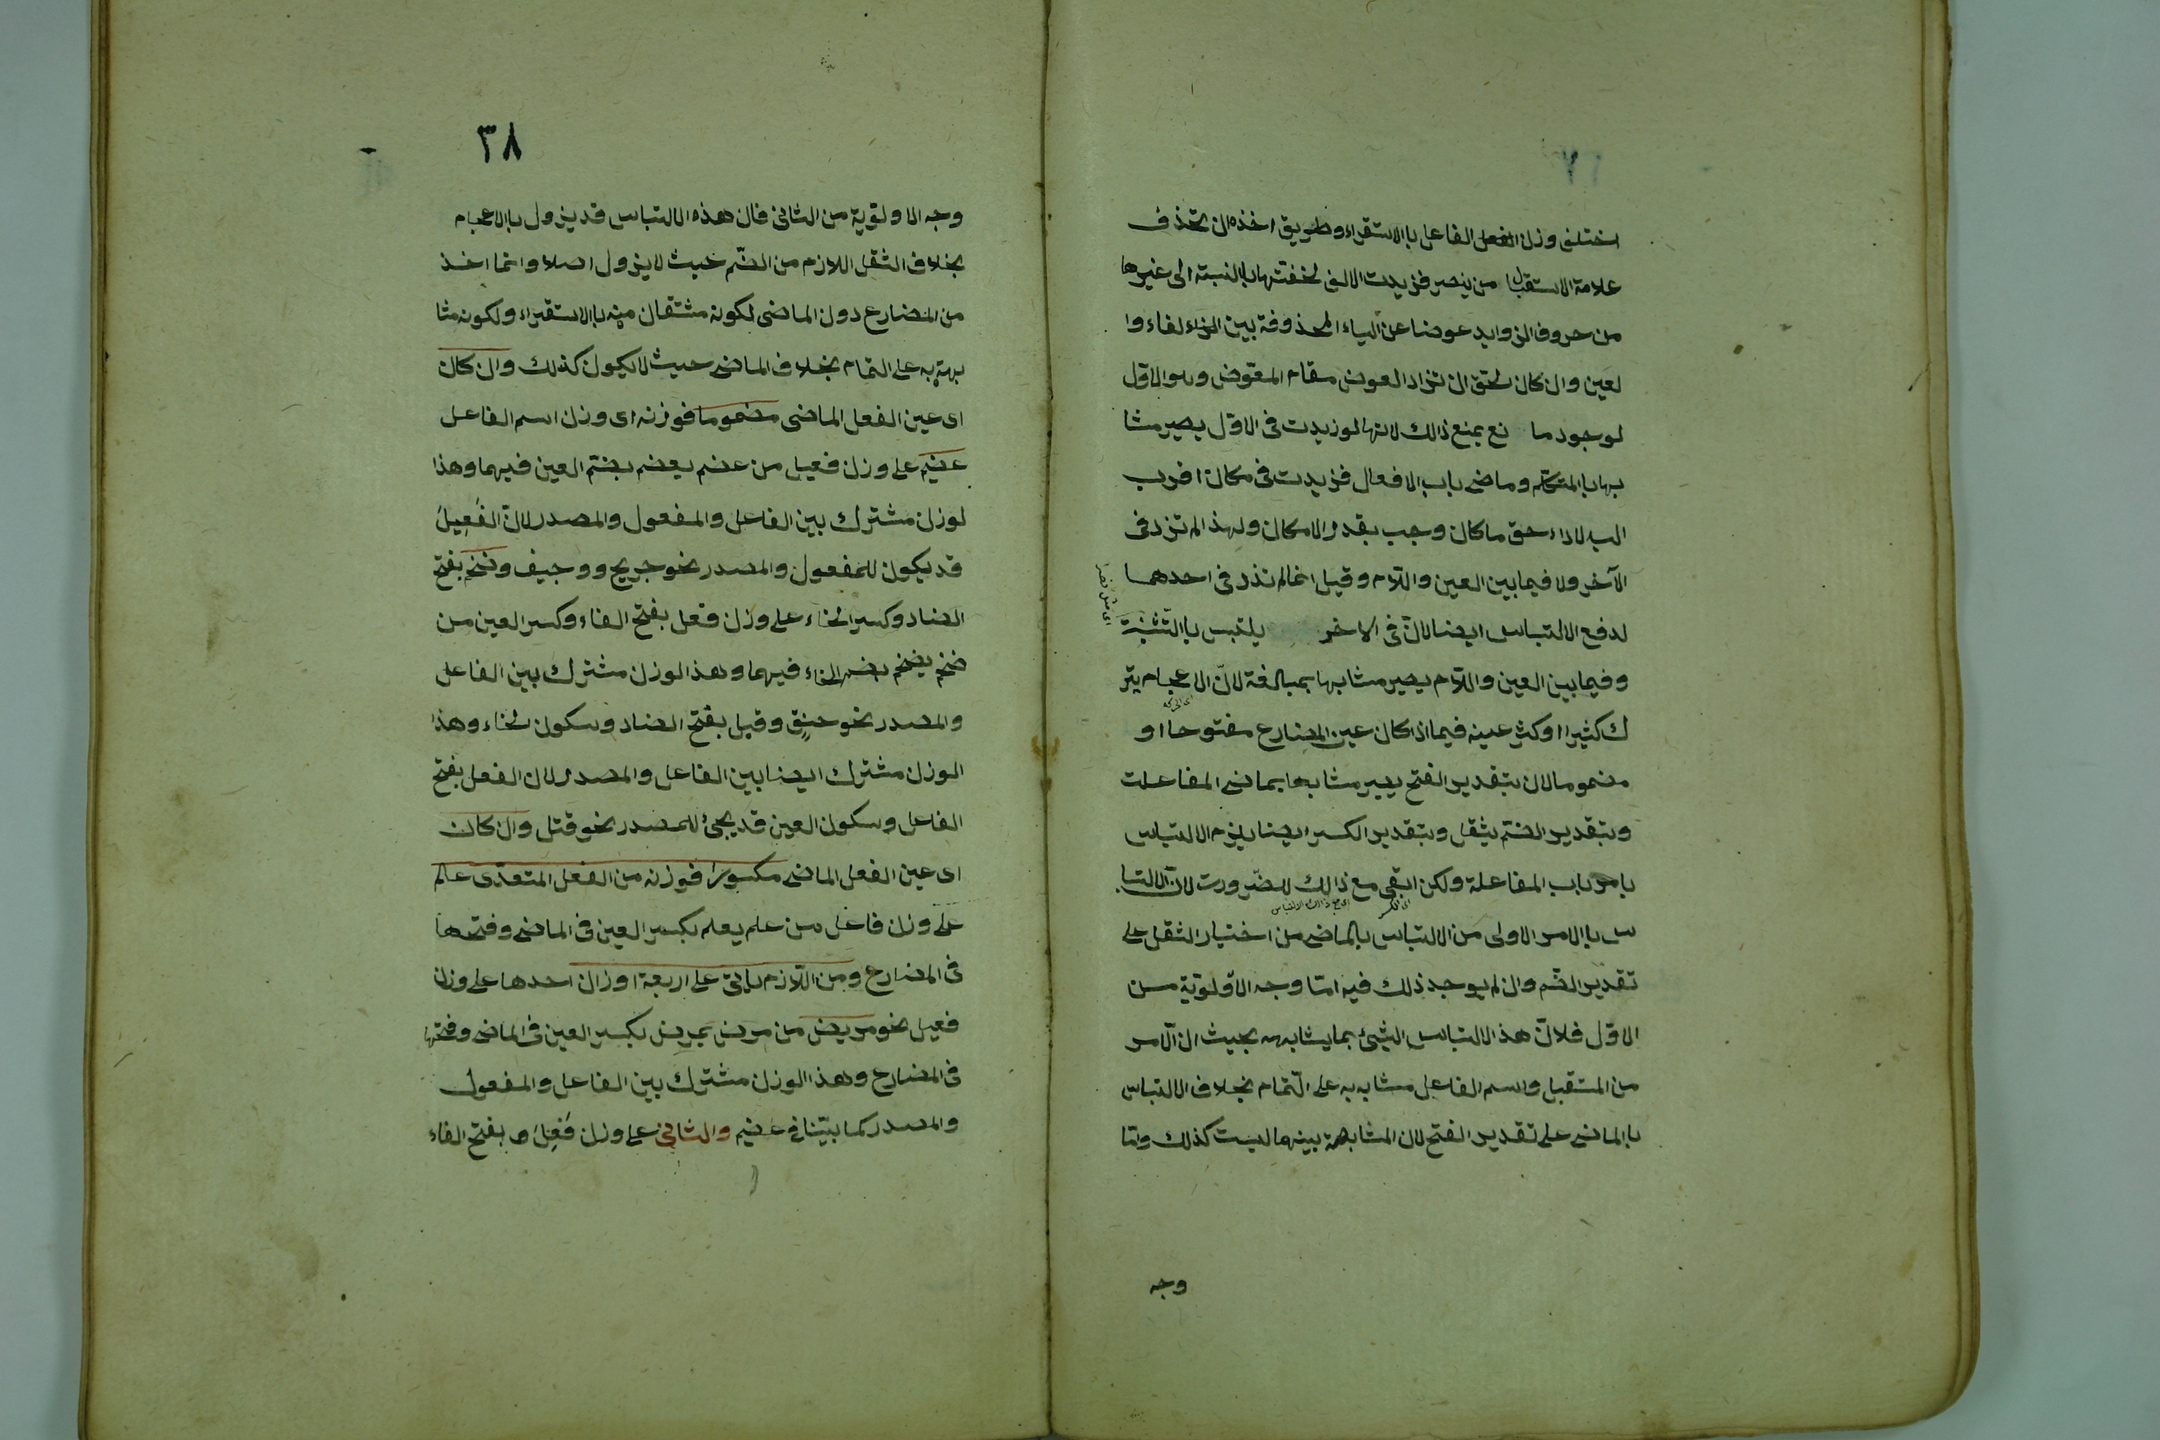 اختلف وزن الفعل الفاعل بالاستقراء وطريق اخذه ان تحذف
علامة الاستقبال من ينصر فزيدت الالف لخفتها بالنسبة الى غيرها
من حروف الزوايد عوضا عن الياء المحذوفة بين الزاء لفاء وا
لعين وان كان لحق ان تزاد العوض مقام المعوض وهو الاول
لوجود ما نع يمنع ذالك لانها لو زيدت فى الاول يصير مشا
بها بالمتكلم وماضى باب الافعال فزيدت فى مكان اقرب
اليه لاداء حق ما كان وجب بقدر الامكان ولهذا لم تزد فى
الآخر ولا فيما بين العين واللام وقيل انما لم تزد فى احدهما
لدفع الالتباس ايضا لان فى الاخر يلتبس بالتثنية
وفيما بين العين واللام يصير مشابها بمبالغة لان الاعجام يتر
ك كثيرا وكثر عينه فيما اذا كان عين المضارع مفتوحا او
مضموما لان بتقدير الفتح يصير مشابها بماضى المفاعلت
وبتقدير الضم يثقل وبتقدير الكسر ايضا يلزم الالتباس
بامر باب المفاعلة ولكن ابقى مع ذالك للضرورت لان الالتبا
اى الكسر اى مع ذالك الالتباس
س بالامر الاولى من الالتباس بالماضى من اختيار الثقل على
تقدير الضم وان لم يوجد ذلك فيه اما وجه الاولوية من
الاول فلان هذا الالتباس الشئ بما يشابهه بحيث ان الامر
من المستقبل واسم الفاعل مشابه به على التمام بخلاف الالتباس
بالماضى على تقدير الفتح لان المشابهة بينهما ليست كذلك واما
وجه
٣٨
وجه الاولوية من الثانى فان هذه الالتباس قد يزول بالاعجام
بخلاف الثقل اللازم من الضم حيث لا يزول اصلا وانما اخذ
من المضارع دون الماضى لكونه مشتقان منه بالاستقراء ولكونه مشا
بهة به على التمام بخلاف الماضى حيث لا يكون كذلك وان كان
اى عين الفعل الماضى مضموما فوزنه اى وزن اسم الفاعل
عضيم على وزن فعيل من عضم يعضم بضم العين فيهما وهذا
لوزن مشترك بين الفاعل والمفعول والمصدر لان الفعيل
قد يكون للمفعول والمصدر نحو جريح ووجيف وضخم بفتح
الضاد وكسر الخاء على وزن فعل بفتح الفاء وكسر العين من
ضخم يضخم بضم الخاء فيهما وهذا الوزن مشترك بين الفاعل
والمصدر نحو خنق وقيل بفتح الضاد وسكون لخاء وهذا
الوزن مشترك ايضا بين الفاعل والمصدر لان الفعل بفتح
الفاعل وسكون العين قد يجئ للمصدر نحو قتل وان كان
اى عين الفعل الماضى مكسورا فوزنه من الفعل المتعدى عالم
على وزن فاعل من علم يعلم بكسر العين فى الماضى وفتحها
فى المضارع ومن اللازم ياتى على اربعة اوزان احدها على وزن
فعيل نحو مريض من مرض يمرض بكسر العين فى الماضى وفتحها
فى المضارع وهذا الوزن مشترك بين الفاعل والمفعول
والمصدر كما بينا فى عضيم والثانى على وزن فعل بفتح الفاء